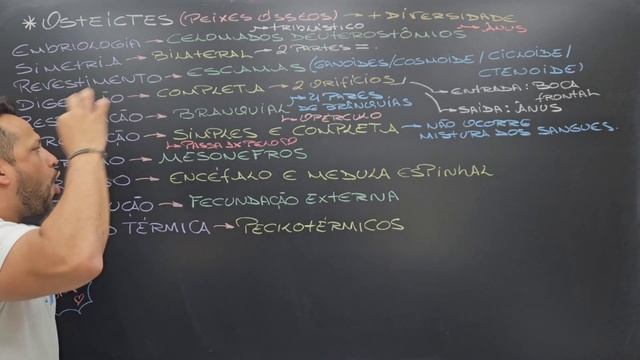 * OSTEICTES (PEIXES ÓSSEOS) → + DIVERSIDADE
→ TRIBLÁSTICO
EMBRIOLOGIA → CELOMADOS DEUTEROSTÔMIOS → ÂNUS
SIMETRIA → BILATERAL → 2 PARTES =.
REVESTIMENTO → ESCAMAS (GANÓIDES/COSMOIDE/CICLOIDE/
CTENOIDE)
COMPLETA → 2 ORIFÍCIOS → ENTRADA: BOCA
FRONTAL
→ SAÍDA: ÂNUS
BRANQUIAL → 4 PARES
DE BRÂNQUIAS
→ OPÉRCULO
SIMPLES E COMPLETA → NÃO OCORRE
MISTURA DOS SANGUES.
→ MESONEFROS
ENCÉFALO E MEDULA ESPINHAL
UÇÃO → FECUNDAÇÃO EXTERNA
TÉRMICA → PECILOTÉRMICOS